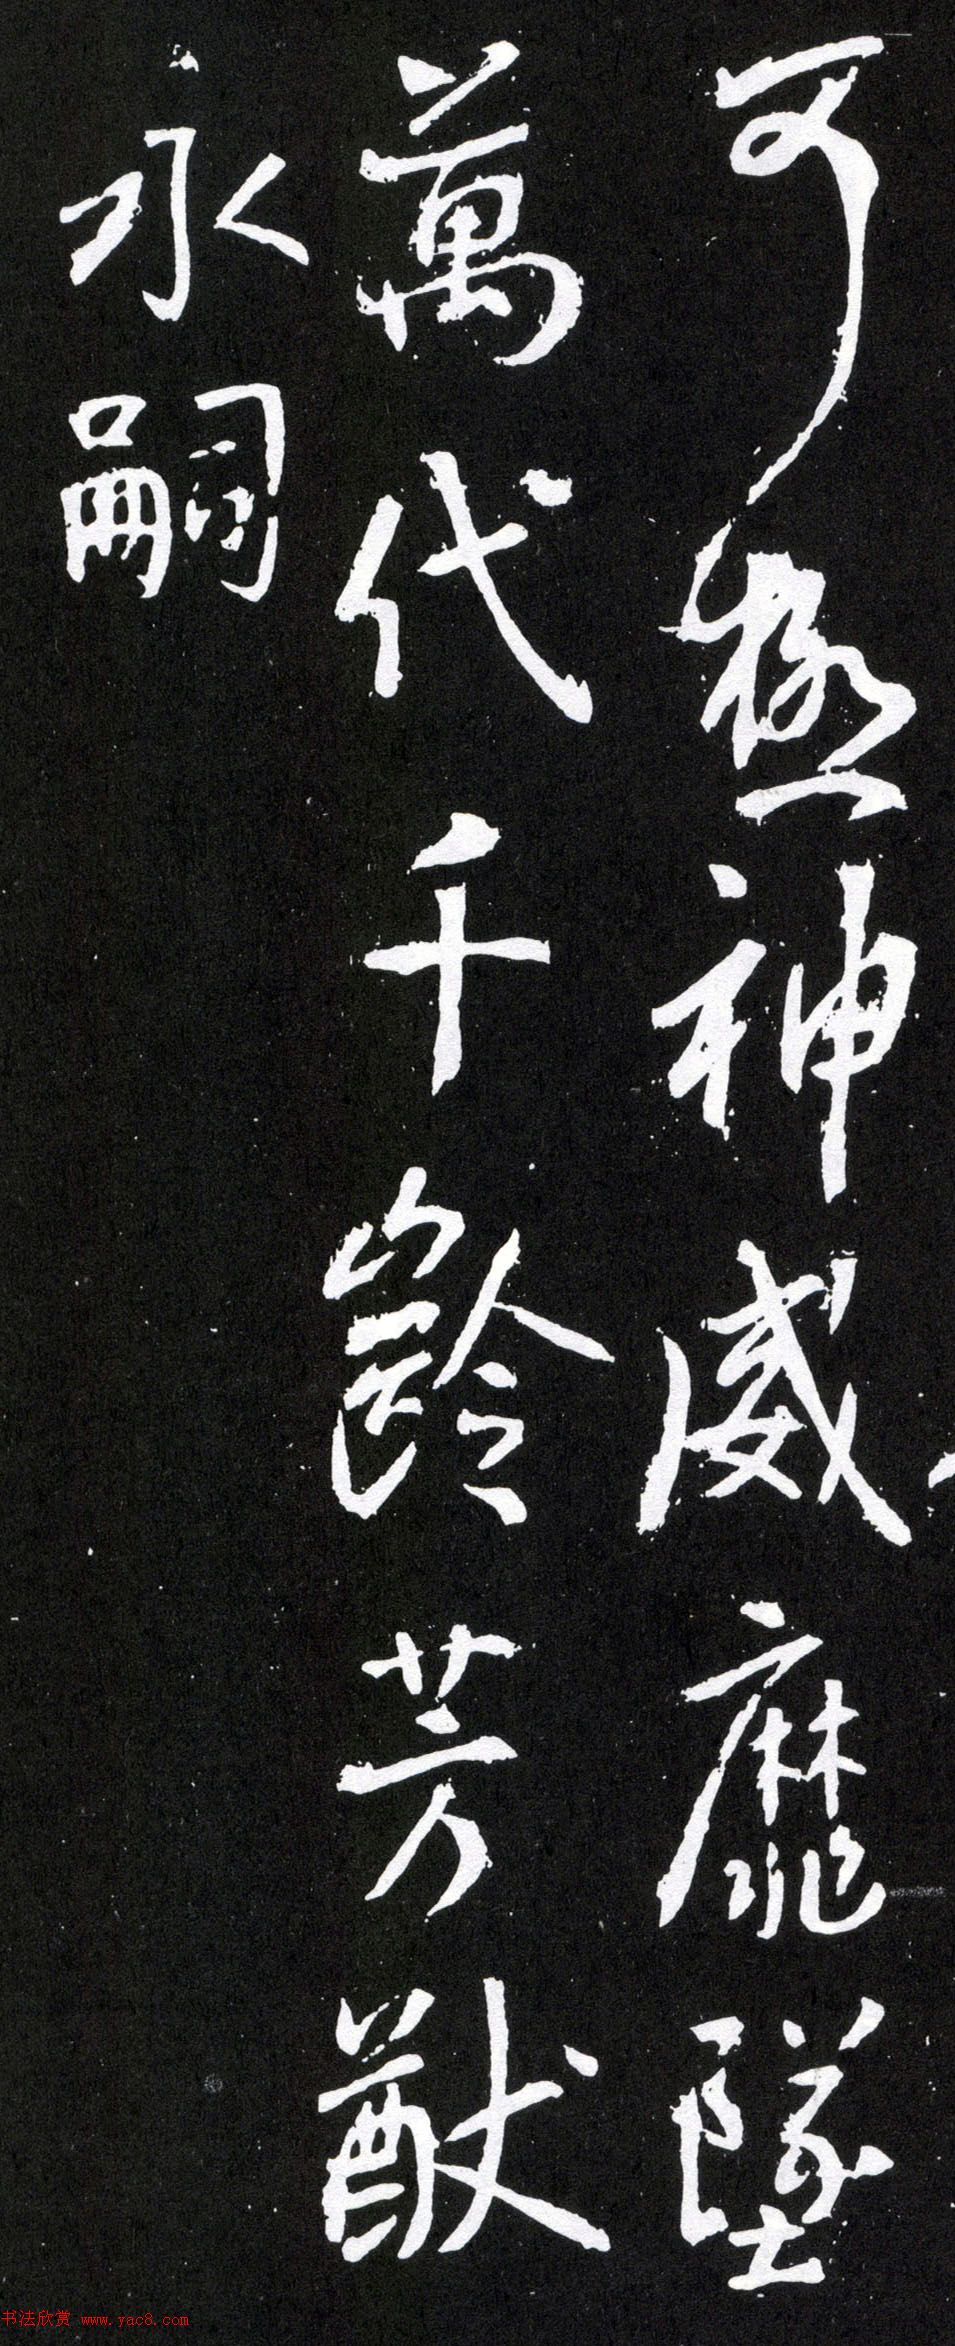 可極神威靡墜
萬代千齡芳猷
永嗣
书法欣赏 www.yac8.com